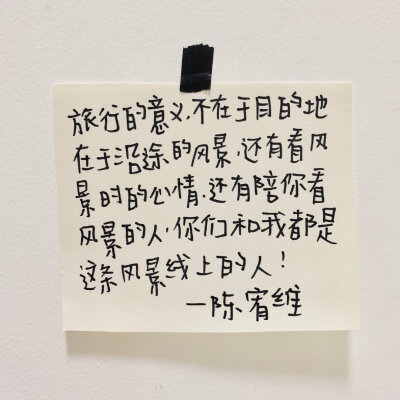 旅行的意义.不在于目的地
在于沿途的风景.还有看风
景时的心情.还有陪你看
风景的人,你们和我都是
这条风景线上的人!
—陈宥维